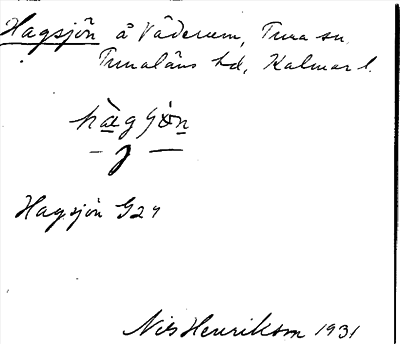 Hagsjön å Väderum, Tuna sn,
Tunaläns hd, Kalmar l.
Hagsjön G27
Nils Henrikson 1931